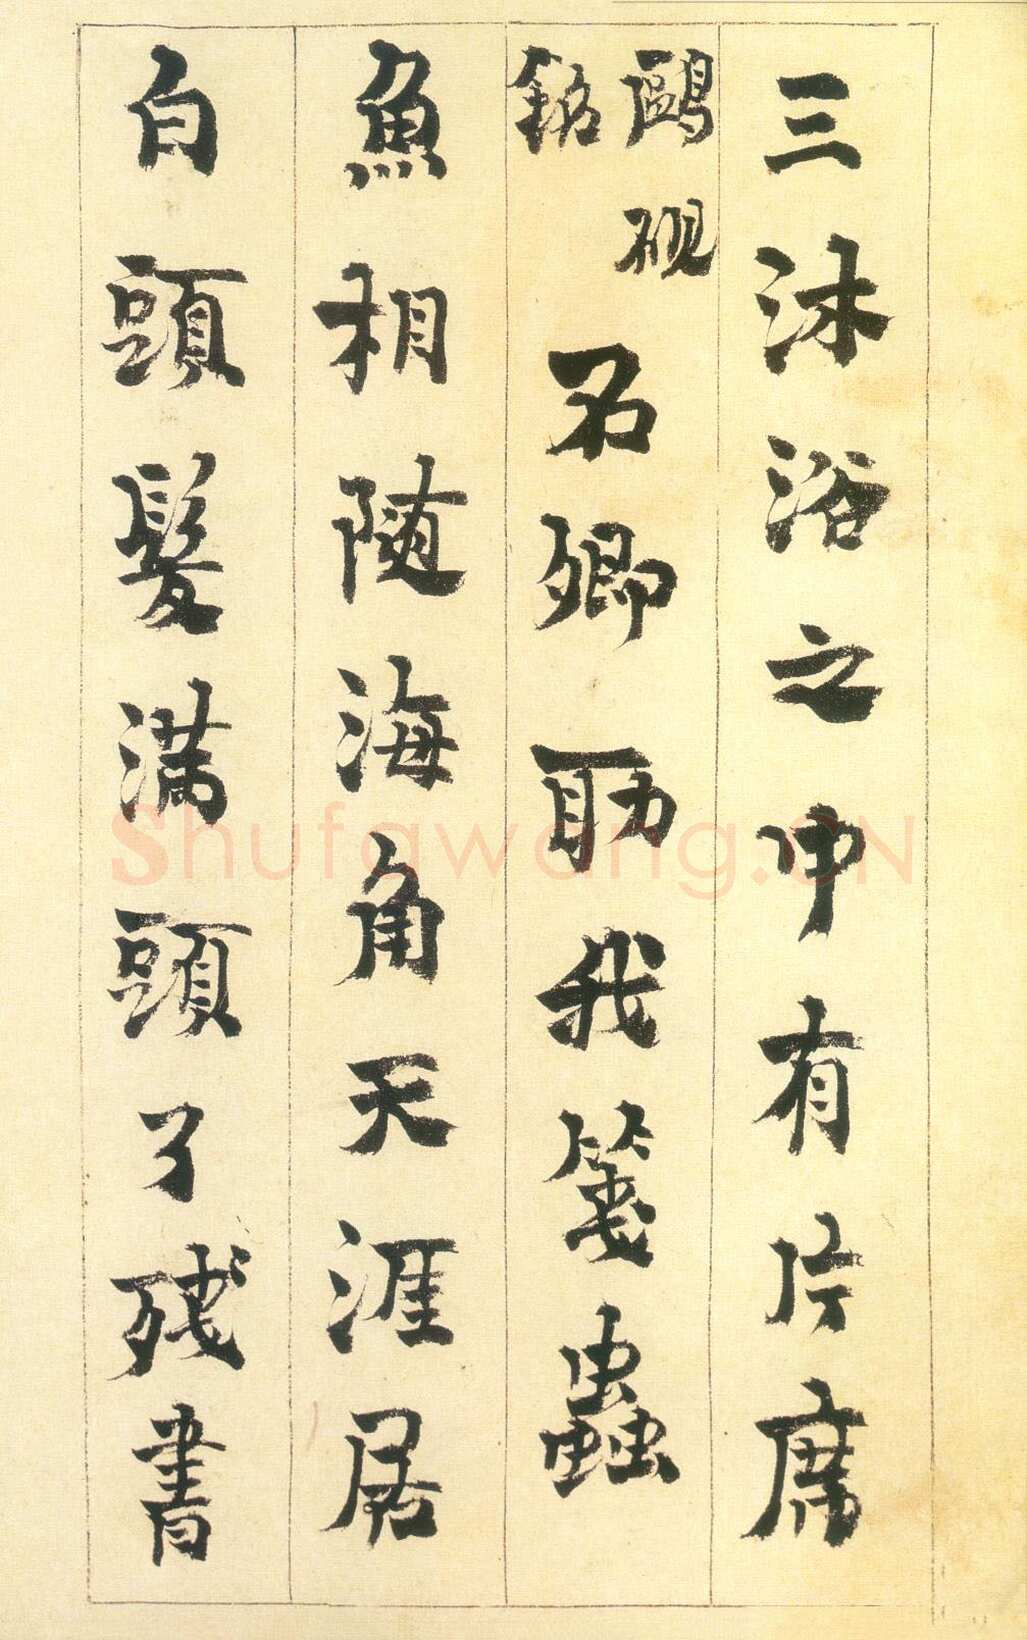 三沐浴之中有片席
鷗硯銘
石卿助我箋蟲
魚相隨海角天涯居
白頭髮滿頭了殘書
Shufawang.CN